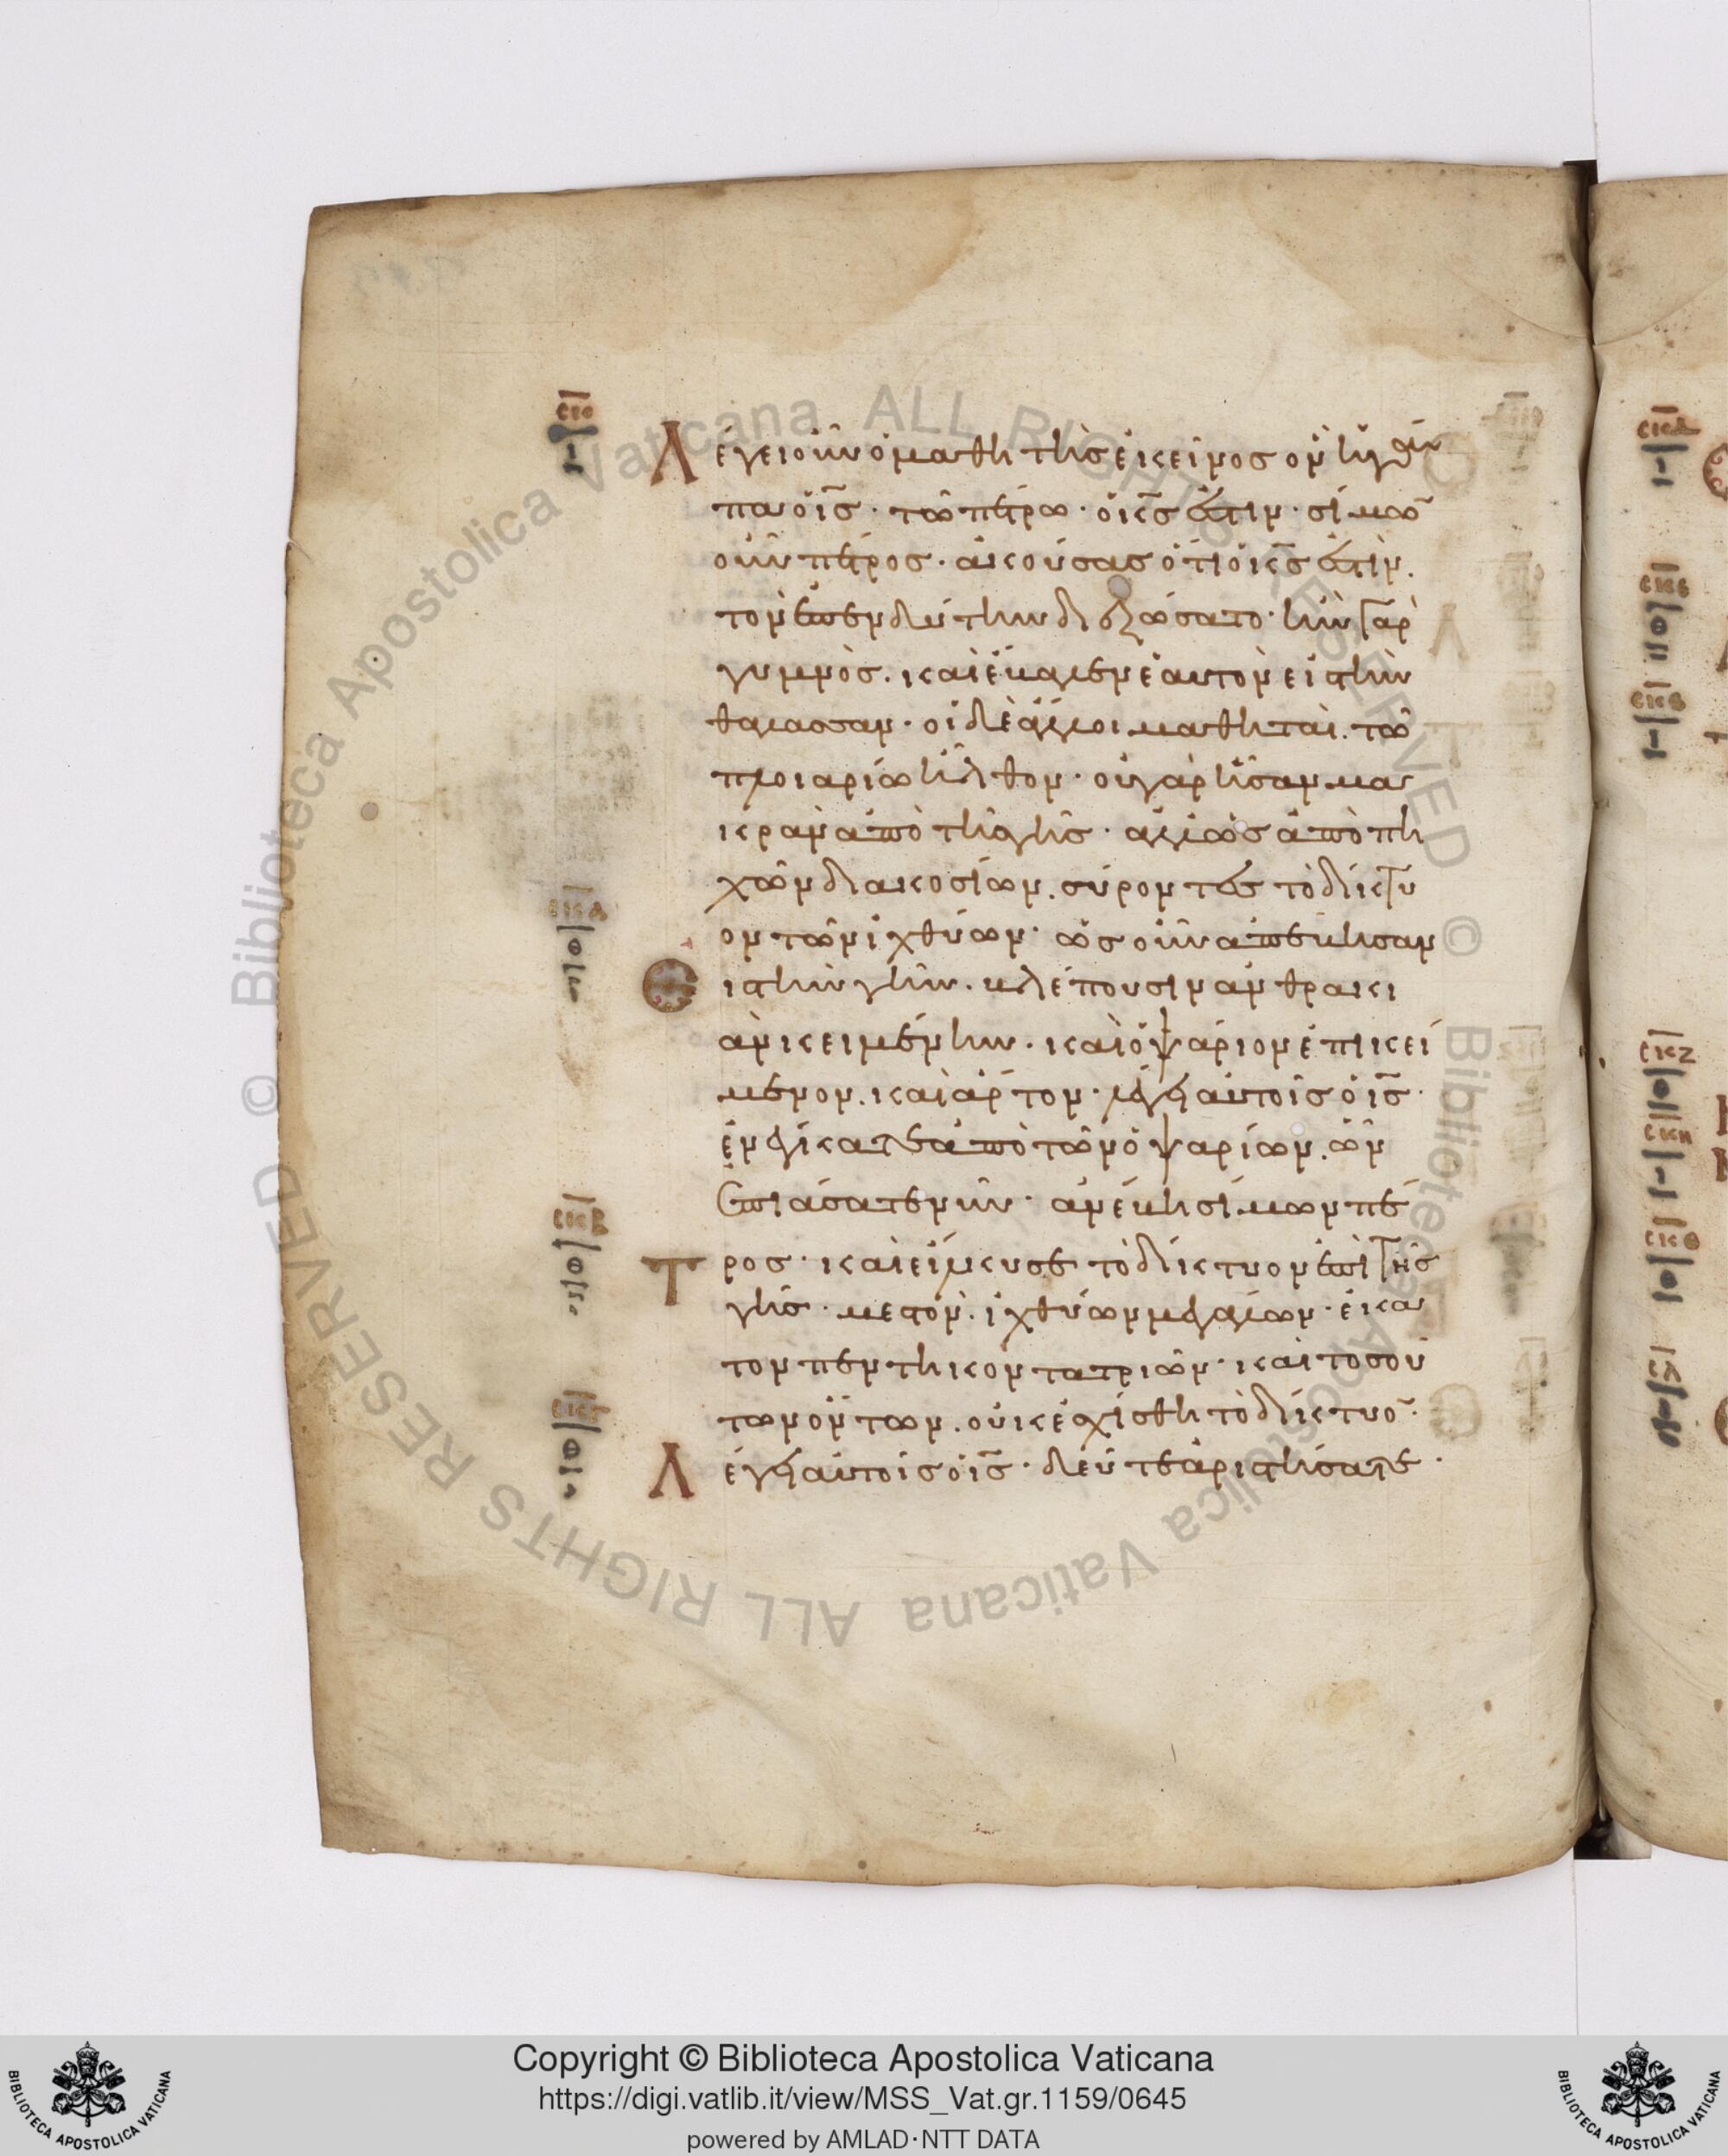 Λέγει οὖν ὁ μαθητὴς ἐκεῖνος ὃν ἠγά
πα ὁ ι̅ς̅· τῶ πέτρω· ὁ κ̅ς̅ ἐστιν· σίμω̅
οὖν πέτρος· ἀκούσας ὅτι ὁ κ̅ς̅ ἐστιν.
τὸν ἐπενδύτην διεζώσατο· ἦν γὰρ
γυμνὸς. καὶ ἔβαλεν ἑαυτὸν εἰς τὴν
θάλασσαν· οἱ δὲ ἄλλοι μαθηταὶ. τῶ
πλοιαρίω ἦλθον· οὐ γὰρ ἦσαν μα
κρὰν ἀπὸ τῆς γῆς· ἀλλ' ὡς ἀπὸ πη
χῶν διακοσίων. σύροντες τὸ δίκτυ
ον τῶν ἰχθύων· ὡς οὖν ἀπέβησαν
ἰς τὴν γῆν. βλέπουσιν ἀνθρακι
ὰν κειμένην. καὶ ὀψάριον ἐπικεί
μενον. καὶ ἄρτον· λέγει αὐτοῖς ὁ ι̅ς̅·
ἐνέγκατε ἀπὸ τῶν ὀψαρίων. ὧν
ἐπιάσατε νῦν· ἀνέβη σίμων πέ
τρος· καὶ εἵλκυσε τὸ δίκτυον ἐπὶ τῆς
γῆς· μεστὸν. ἰχθύων μεγάλων· ἑκα
τὸν πεντηκοντατριῶν· καὶ τοσού
των ὄντων. οὐκ ἐσχίσθη τὸ δίκτυο̅·
Λέγει αὐτοῖς ὁ ι̅ς̅· δεῦτε ἀριστήσατε·
Copyright © Biblioteca Apostolica Vaticana
https://digi.vatlib.it/view/MSS_Vat.gr.1159/0645
powered by AMLAD·NTT DATA
BIBLIOTECA APOSTOLICA VATICANA
BIBLIOTECA APOSTOLICA VATICANA
© Biblioteca Apostolica Vaticana ALL RIGHTS RESERVED
© Biblioteca Apostolica Vaticana ALL RIGHTS RESERVED